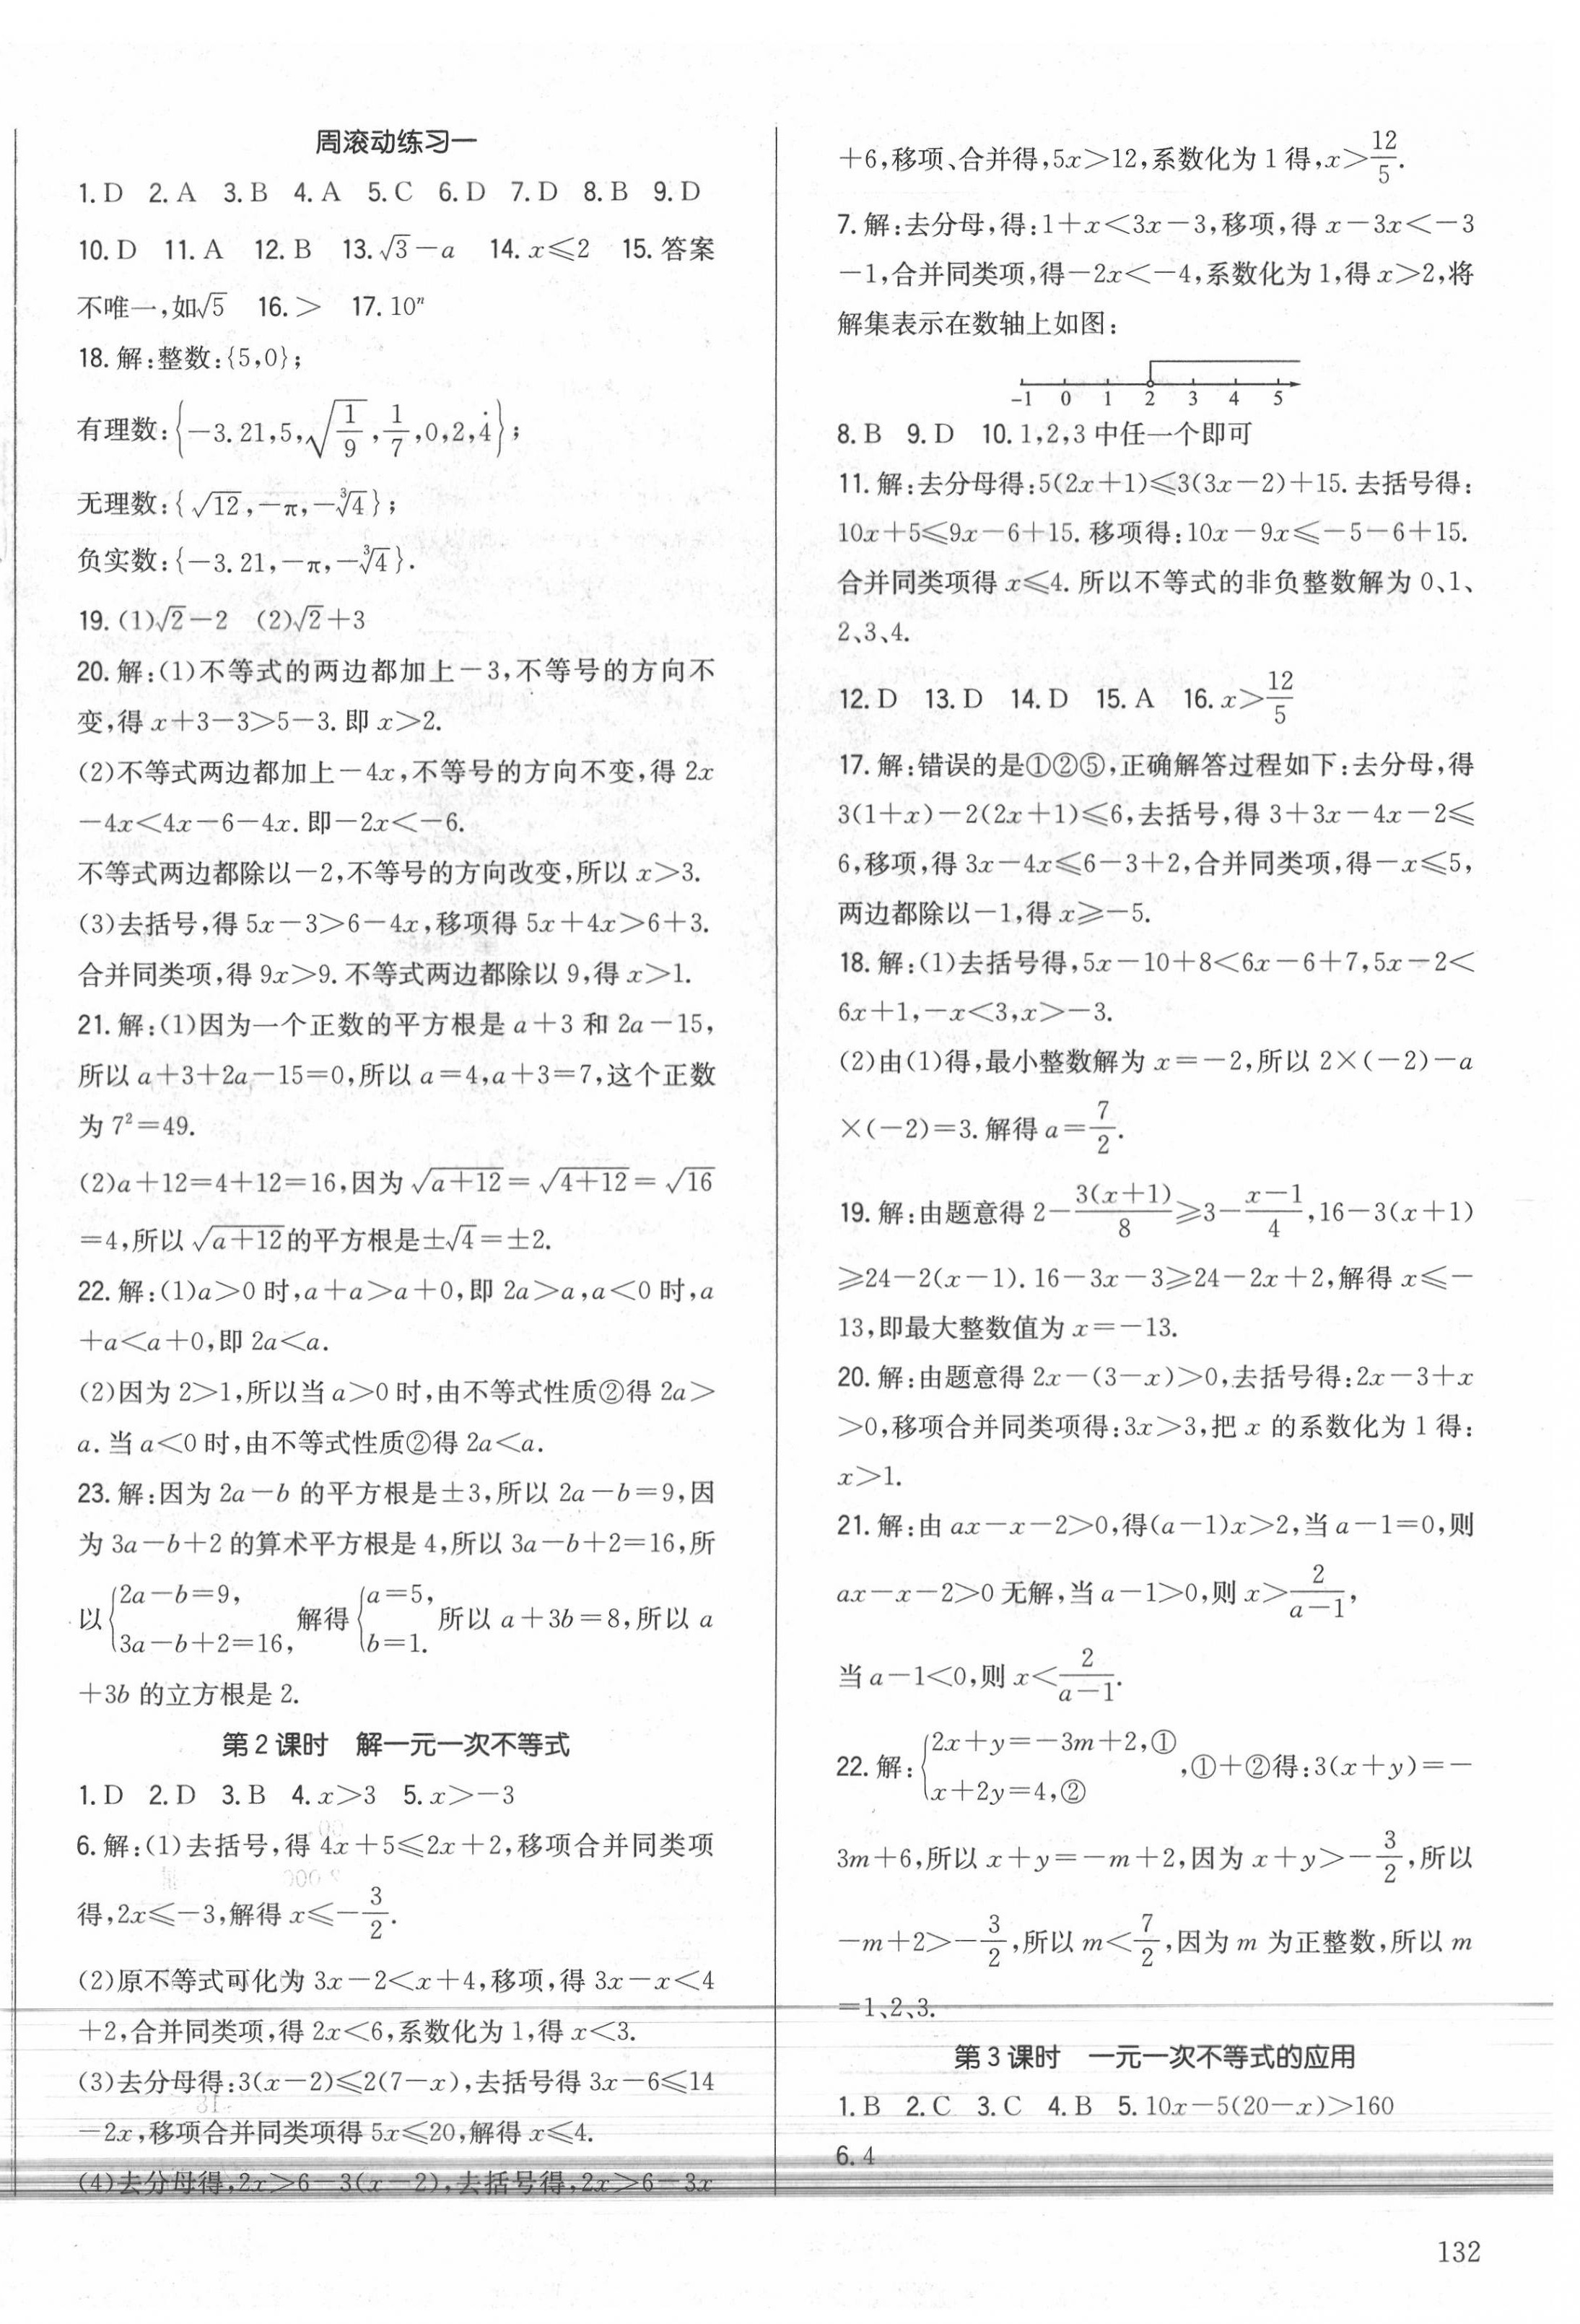 周滚动练习一
1. D 2. A 3. B 4. A 5. C 6. D 7. D 8. B 9. D
10. D 11. A 12. B 13. √3－a 14. x≤2 15. 答案
不唯一,如√5 16. ＞ 17. 10ⁿ
18. 解:整数:{5,0};
有理数:{－3.21,5,√(1/9),1/7,0,2,4̇};
无理数:{√12,－π,－∛4};
负实数:{－3.21,－π,－∛4}.
19. (1)√2－2 (2)√2＋3
20. 解:(1)不等式的两边都加上－3,不等号的方向不
变,得 x＋3－3＞5－3. 即 x＞2.
(2)不等式两边都加上－4x,不等号的方向不变,得 2x
－4x＜4x－6－4x. 即－2x＜－6.
不等式两边都除以－2,不等号的方向改变,所以 x＞3.
(3)去括号,得 5x－3＞6－4x,移项得 5x＋4x＞6＋3.
合并同类项,得 9x＞9. 不等式两边都除以 9,得 x＞1.
21. 解:(1)因为一个正数的平方根是 a＋3 和 2a－15,
所以 a＋3＋2a－15＝0,所以 a＝4,a＋3＝7,这个正数
为 7²＝49.
(2)a＋12＝4＋12＝16,因为 √(a＋12)＝√(4＋12)＝√16
＝4,所以 √(a＋12)的平方根是±√4＝±2.
22. 解:(1)a＞0 时,a＋a＞a＋0,即 2a＞a,a＜0 时,a
＋a＜a＋0,即 2a＜a.
(2)因为 2＞1,所以当 a＞0 时,由不等式性质②得 2a＞
a. 当 a＜0 时,由不等式性质②得 2a＜a.
23. 解:因为 2a－b 的平方根是±3,所以 2a－b＝9,因
为 3a－b＋2 的算术平方根是 4,所以 3a－b＋2＝16,所
以{2a－b＝9, 3a－b＋2＝16, 解得{a＝5, b＝1. 所以 a＋3b＝8,所以 a
＋3b 的立方根是 2.
第 2 课时 解一元一次不等式
1. D 2. D 3. B 4. x＞3 5. x＞－3
6. 解:(1)去括号,得 4x＋5≤2x＋2,移项合并同类项
得,2x≤－3,解得 x≤－3/2.
(2)原不等式可化为 3x－2＜x＋4,移项,得 3x－x＜4
＋2,合并同类项,得 2x＜6,系数化为 1,得 x＜3.
(3)去分母得:3(x－2)≤2(7－x),去括号得 3x－6≤14
－2x,移项合并同类项得 5x≤20,解得 x≤4.
(4)去分母得,2x＞6－3(x－2),去括号得,2x＞6－3x
＋6,移项、合并得,5x＞12,系数化为 1 得,x＞12/5.
7. 解:去分母,得:1＋x＜3x－3,移项,得 x－3x＜－3
－1,合并同类项,得－2x＜－4,系数化为 1,得 x＞2,将
解集表示在数轴上如图:
－1 0 1 2 3 4 5
8. B 9. D 10. 1,2,3 中任一个即可
11. 解:去分母得:5(2x＋1)≤3(3x－2)＋15. 去括号得:
10x＋5≤9x－6＋15. 移项得:10x－9x≤－5－6＋15.
合并同类项得 x≤4. 所以不等式的非负整数解为 0、1、
2、3、4.
12. D 13. D 14. D 15. A 16. x＞12/5
17. 解:错误的是①②⑤,正确解答过程如下:去分母,得
3(1＋x)－2(2x＋1)≤6,去括号,得 3＋3x－4x－2≤
6,移项,得 3x－4x≤6－3＋2,合并同类项,得－x≤5,
两边都除以－1,得 x≥－5.
18. 解:(1)去括号得,5x－10＋8＜6x－6＋7,5x－2＜
6x＋1,－x＜3,x＞－3.
(2)由(1)得,最小整数解为 x＝－2,所以 2×(－2)－a
×(－2)＝3. 解得 a＝7/2.
19. 解:由题意得 2－3(x＋1)/8≥3－(x－1)/4,16－3(x＋1)
≥24－2(x－1). 16－3x－3≥24－2x＋2,解得 x≤－
13,即最大整数值为 x＝－13.
20. 解:由题意得 2x－(3－x)＞0,去括号得:2x－3＋x
＞0,移项合并同类项得:3x＞3,把 x 的系数化为 1 得:
x＞1.
21. 解:由 ax－x－2＞0,得(a－1)x＞2,当 a－1＝0,则
ax－x－2＞0 无解,当 a－1＞0,则 x＞2/(a－1),
当 a－1＜0,则 x＜2/(a－1).
22. 解:{2x＋y＝－3m＋2,① x＋2y＝4,② ,①＋②得:3(x＋y)＝－
3m＋6,所以 x＋y＝－m＋2,因为 x＋y＞－3/2,所以
－m＋2＞－3/2,所以 m＜7/2,因为 m 为正整数,所以 m
＝1、2、3.
第 3 课时 一元一次不等式的应用
1. B 2. C 3. C 4. B 5. 10x－5(20－x)＞160
6. 4
132